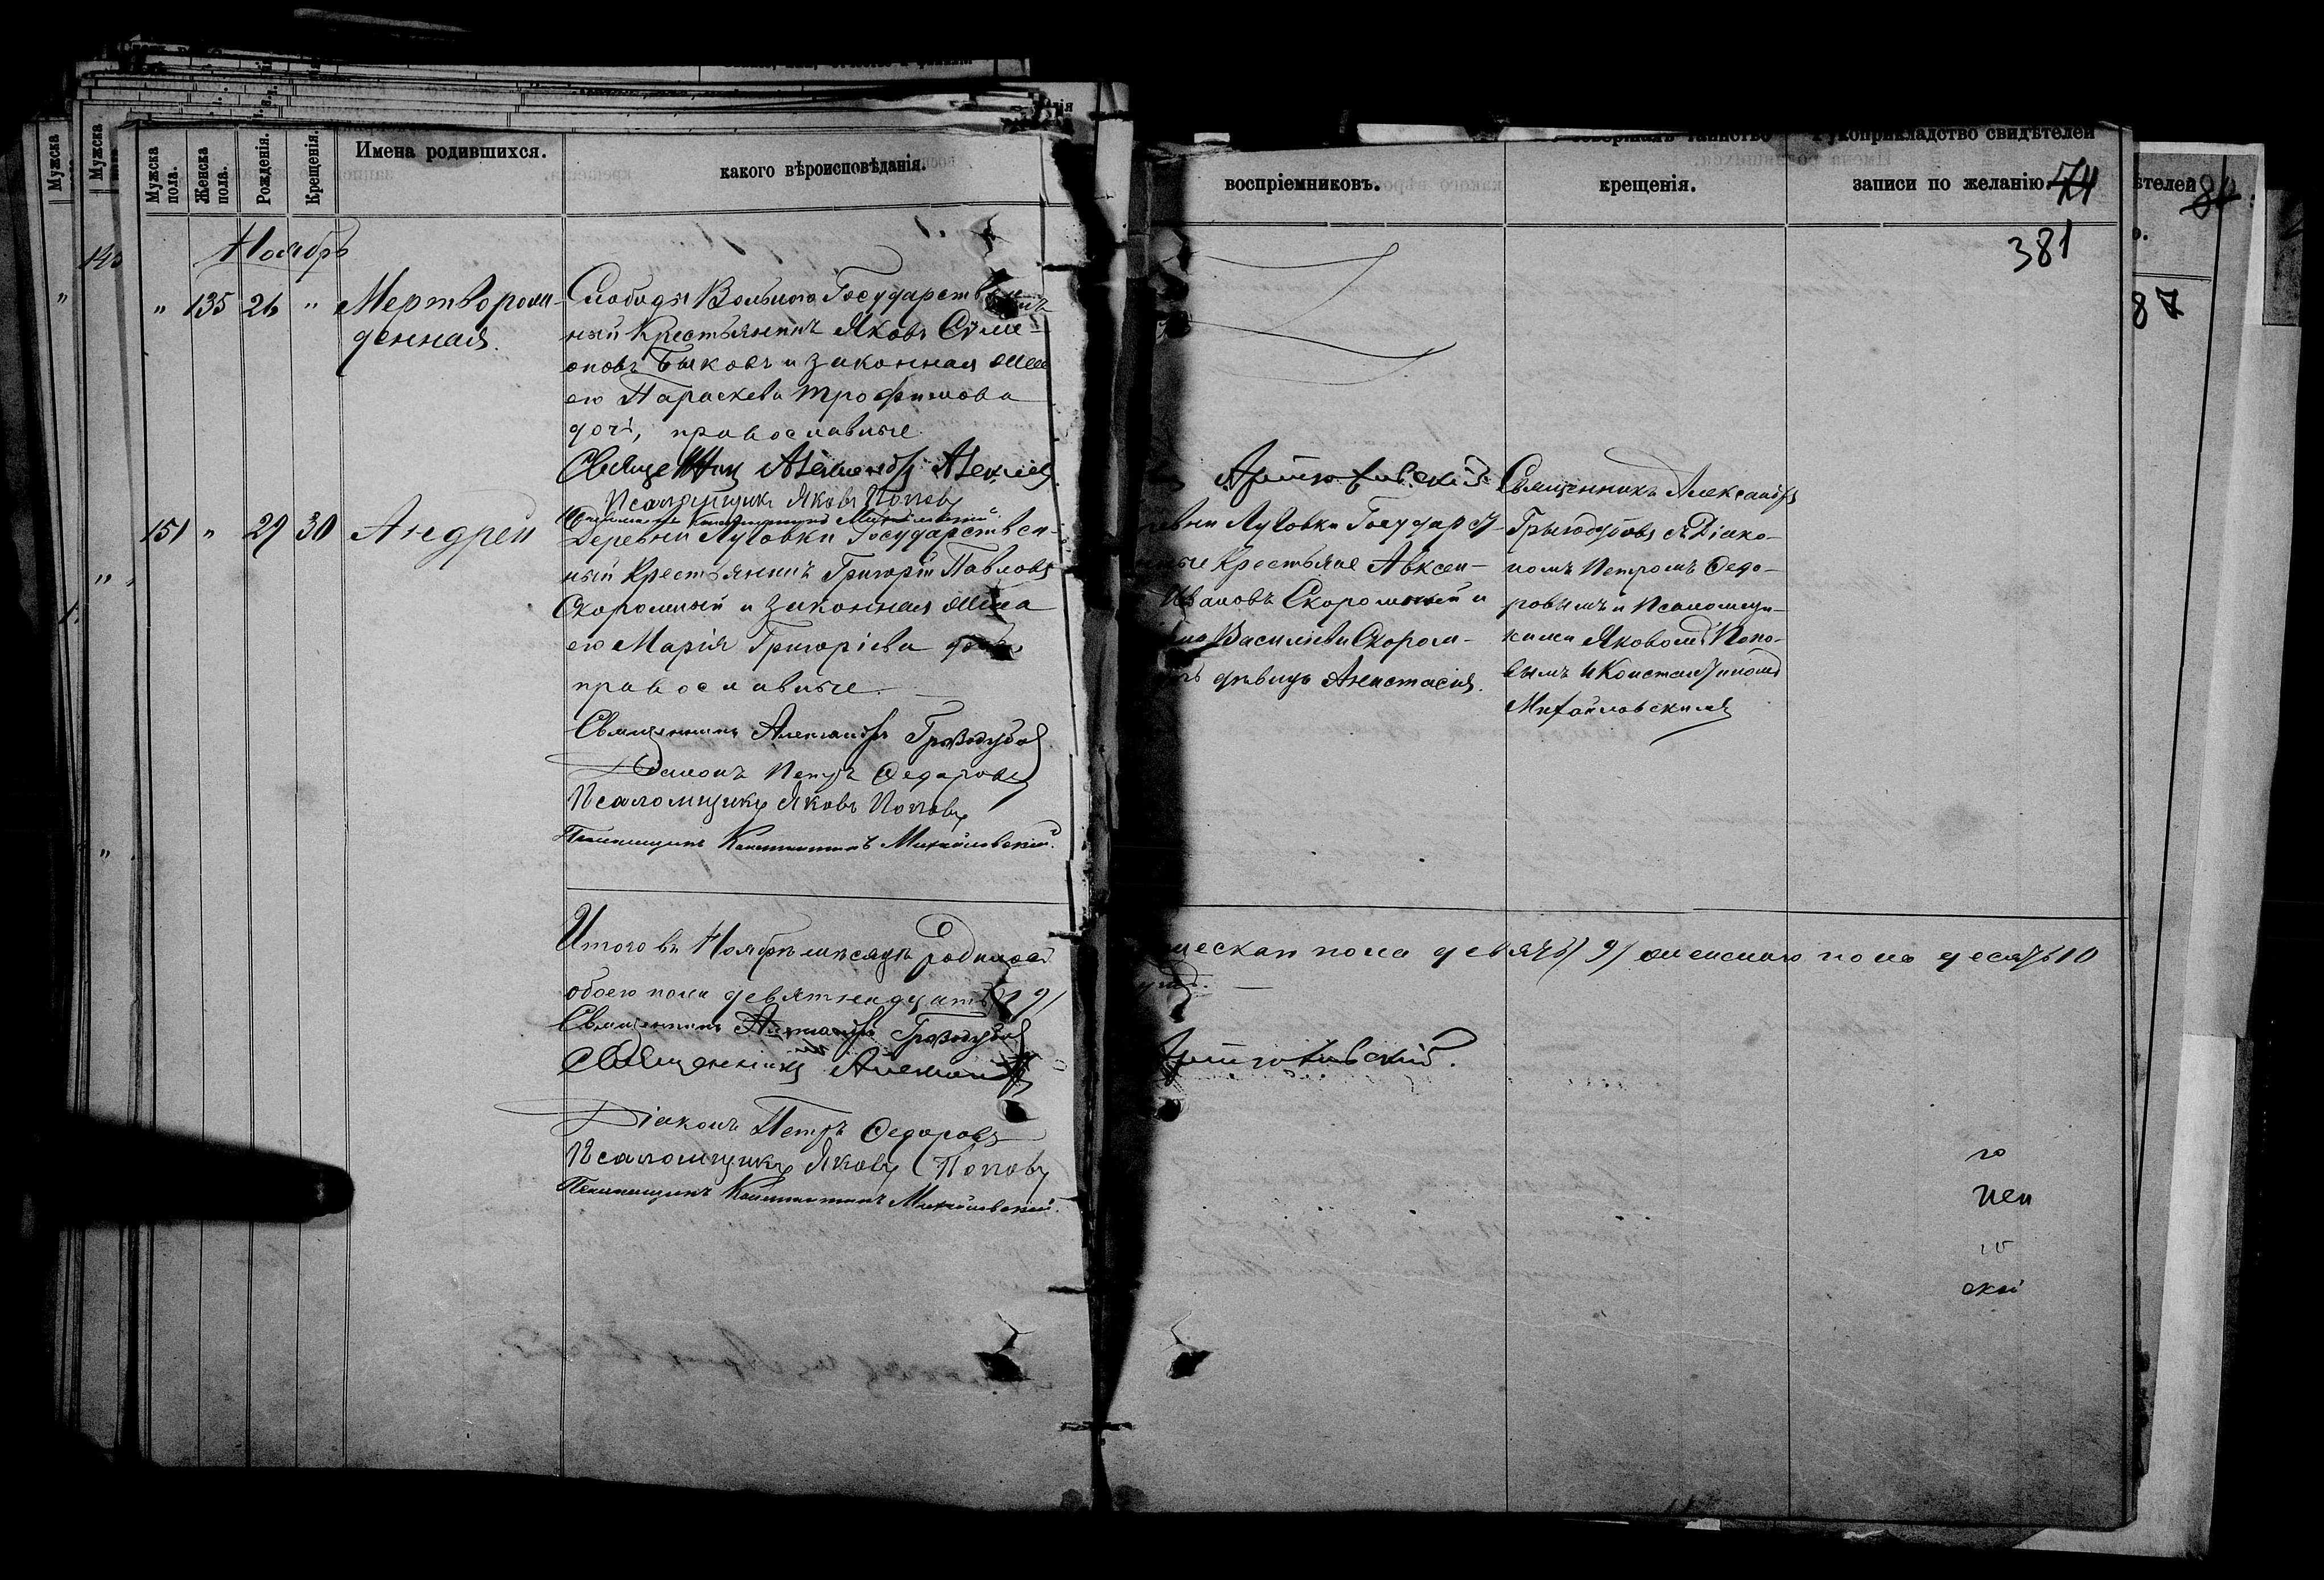 Мужска пола.
Женска пола.
Рожденія.
Крещенія.
Имена родившихся.
какого вѣроисповѣданія.
Ноябрь
" 135 26 " Мертворож-
денная.
Слободы Государствен
ный Крестьянинъ Яковъ Симе-
оновъ Быковъ и законная жена
его Параскева Трофимова
дочь, православные.
Священникъ
Псаломщикъ Яковъ Поповъ
Псаломщикъ Константинъ Михайловскій
151 " 29 30 Андрей
Деревни Луговки Государствен-
ный Крестьянинъ Григорій Павловъ
Скоромный и законная жена
его Марія Григоріева
православные.
Священникъ Александръ
Діаконъ Петръ Федоровъ
Псаломщикъ Яковъ Поповъ
Псаломщикъ Константинъ Михайловскій.
Итого въ Ноябрѣ мѣсяцѣ родилось
обоего пола девятнадцать 19/
Священникъ Александръ
Священникъ
Діаконъ Петръ Федоровъ
Псаломщикъ Яковъ Поповъ
Псаломщикъ Константинъ Михайловскій.
воспріемниковъ.
крещенія.
Рукоприкладство свидѣтелей
записи по желанію
74
381
87
евни Луговки Государст-
ные Крестьяне Авксен-
Ивановъ Скоромный и
Василіева Скором-
дѣвица Анастасія.
Священникъ Александръ
съ Діако-
номъ Петромъ Федо-
ровымъ и Псаломщи-
ками Яковомъ Попо-
вымъ и Константиномъ
Михайловскимъ
ческаго пола девять/9/ женскаго пола десять 10
го
нен
скі